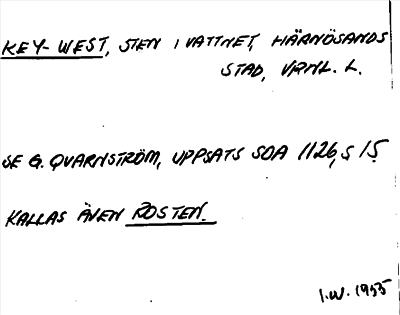 KEY-WEST, STEN I VATTNET, HÄRNÖSANDS
STAD, VRNL. L.
SE G. QVARNSTRÖM, UPPSATS SOA 1126, S 15.
KALLAS ÄVEN ROSTEN.
I.W. 1955